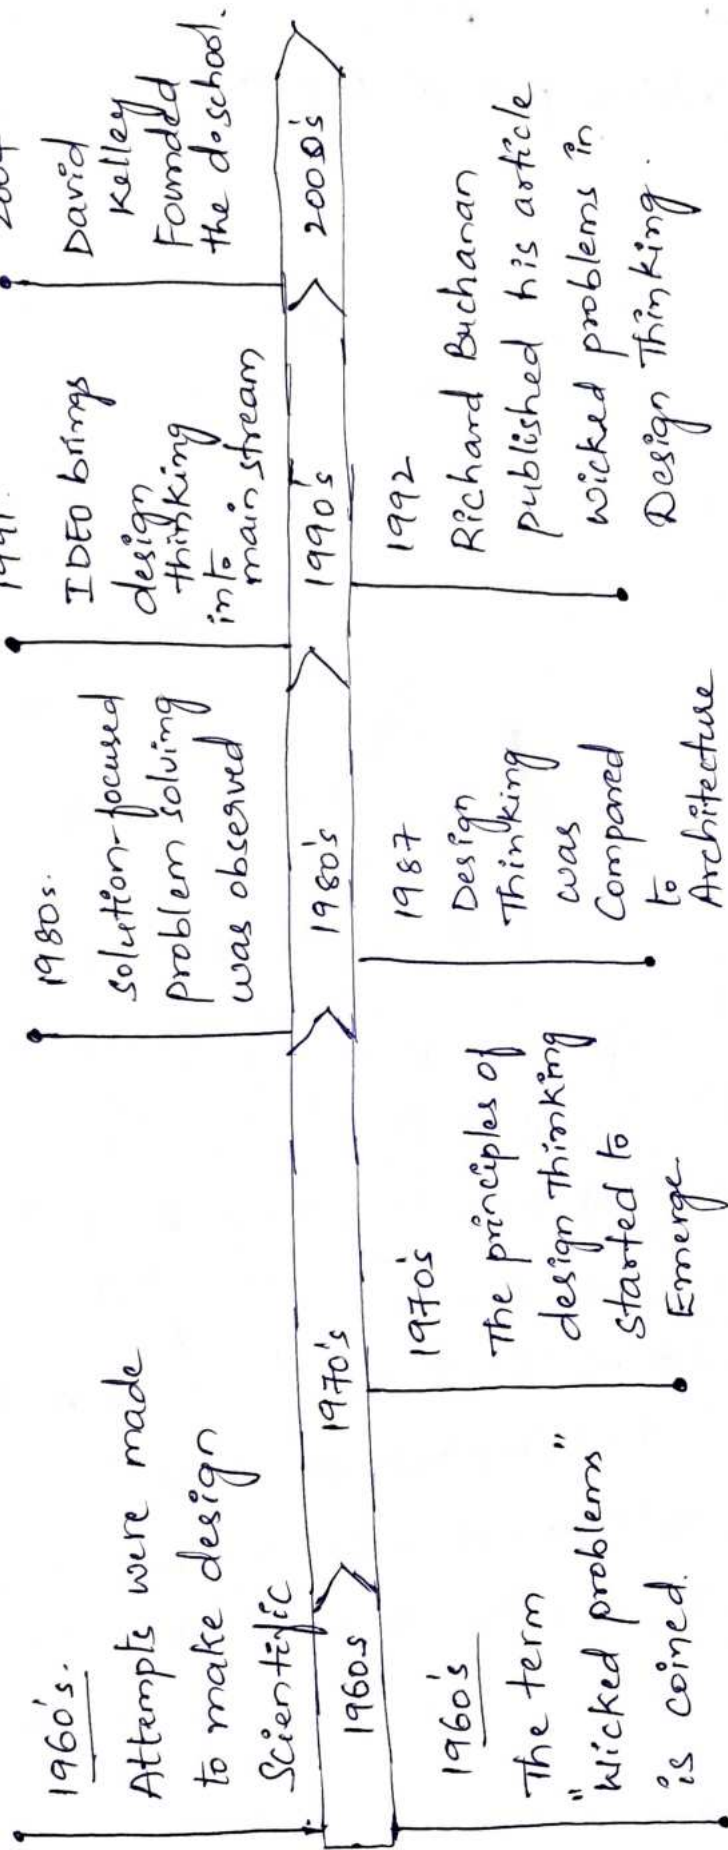 1960's.
Attempts were made
to make design
Scientific
1980s.
solution-focused
problem solving
was observed
1991.
IDEO brings
design
thinking
into
main stream
2004
David
Kelley
Founded
the d.school.
1960s
1970's
1980's
1990's
2000's
1960's
The term
"wicked problems"
is coined.
1970's
The principles of
design Thinking
started to
Emerge.
1987
Design
Thinking
was
Compared
to
Architecture
1992
Richard Buchanan
published his article
wicked problems in
Design Thinking.